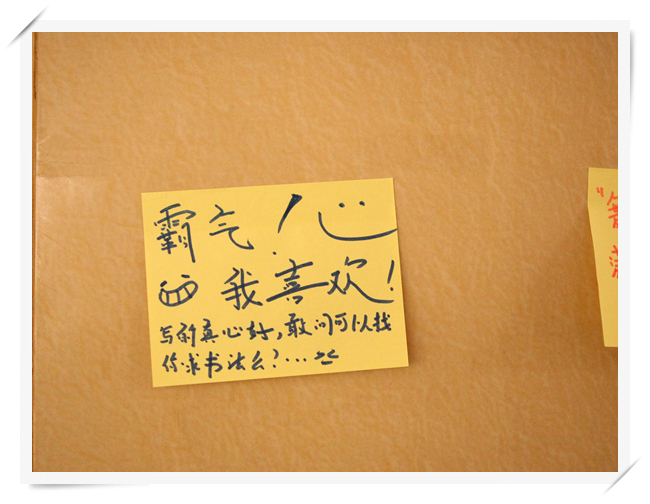 霸气！
我喜欢！
写的真心好，敢问可以找
你求书法么？...